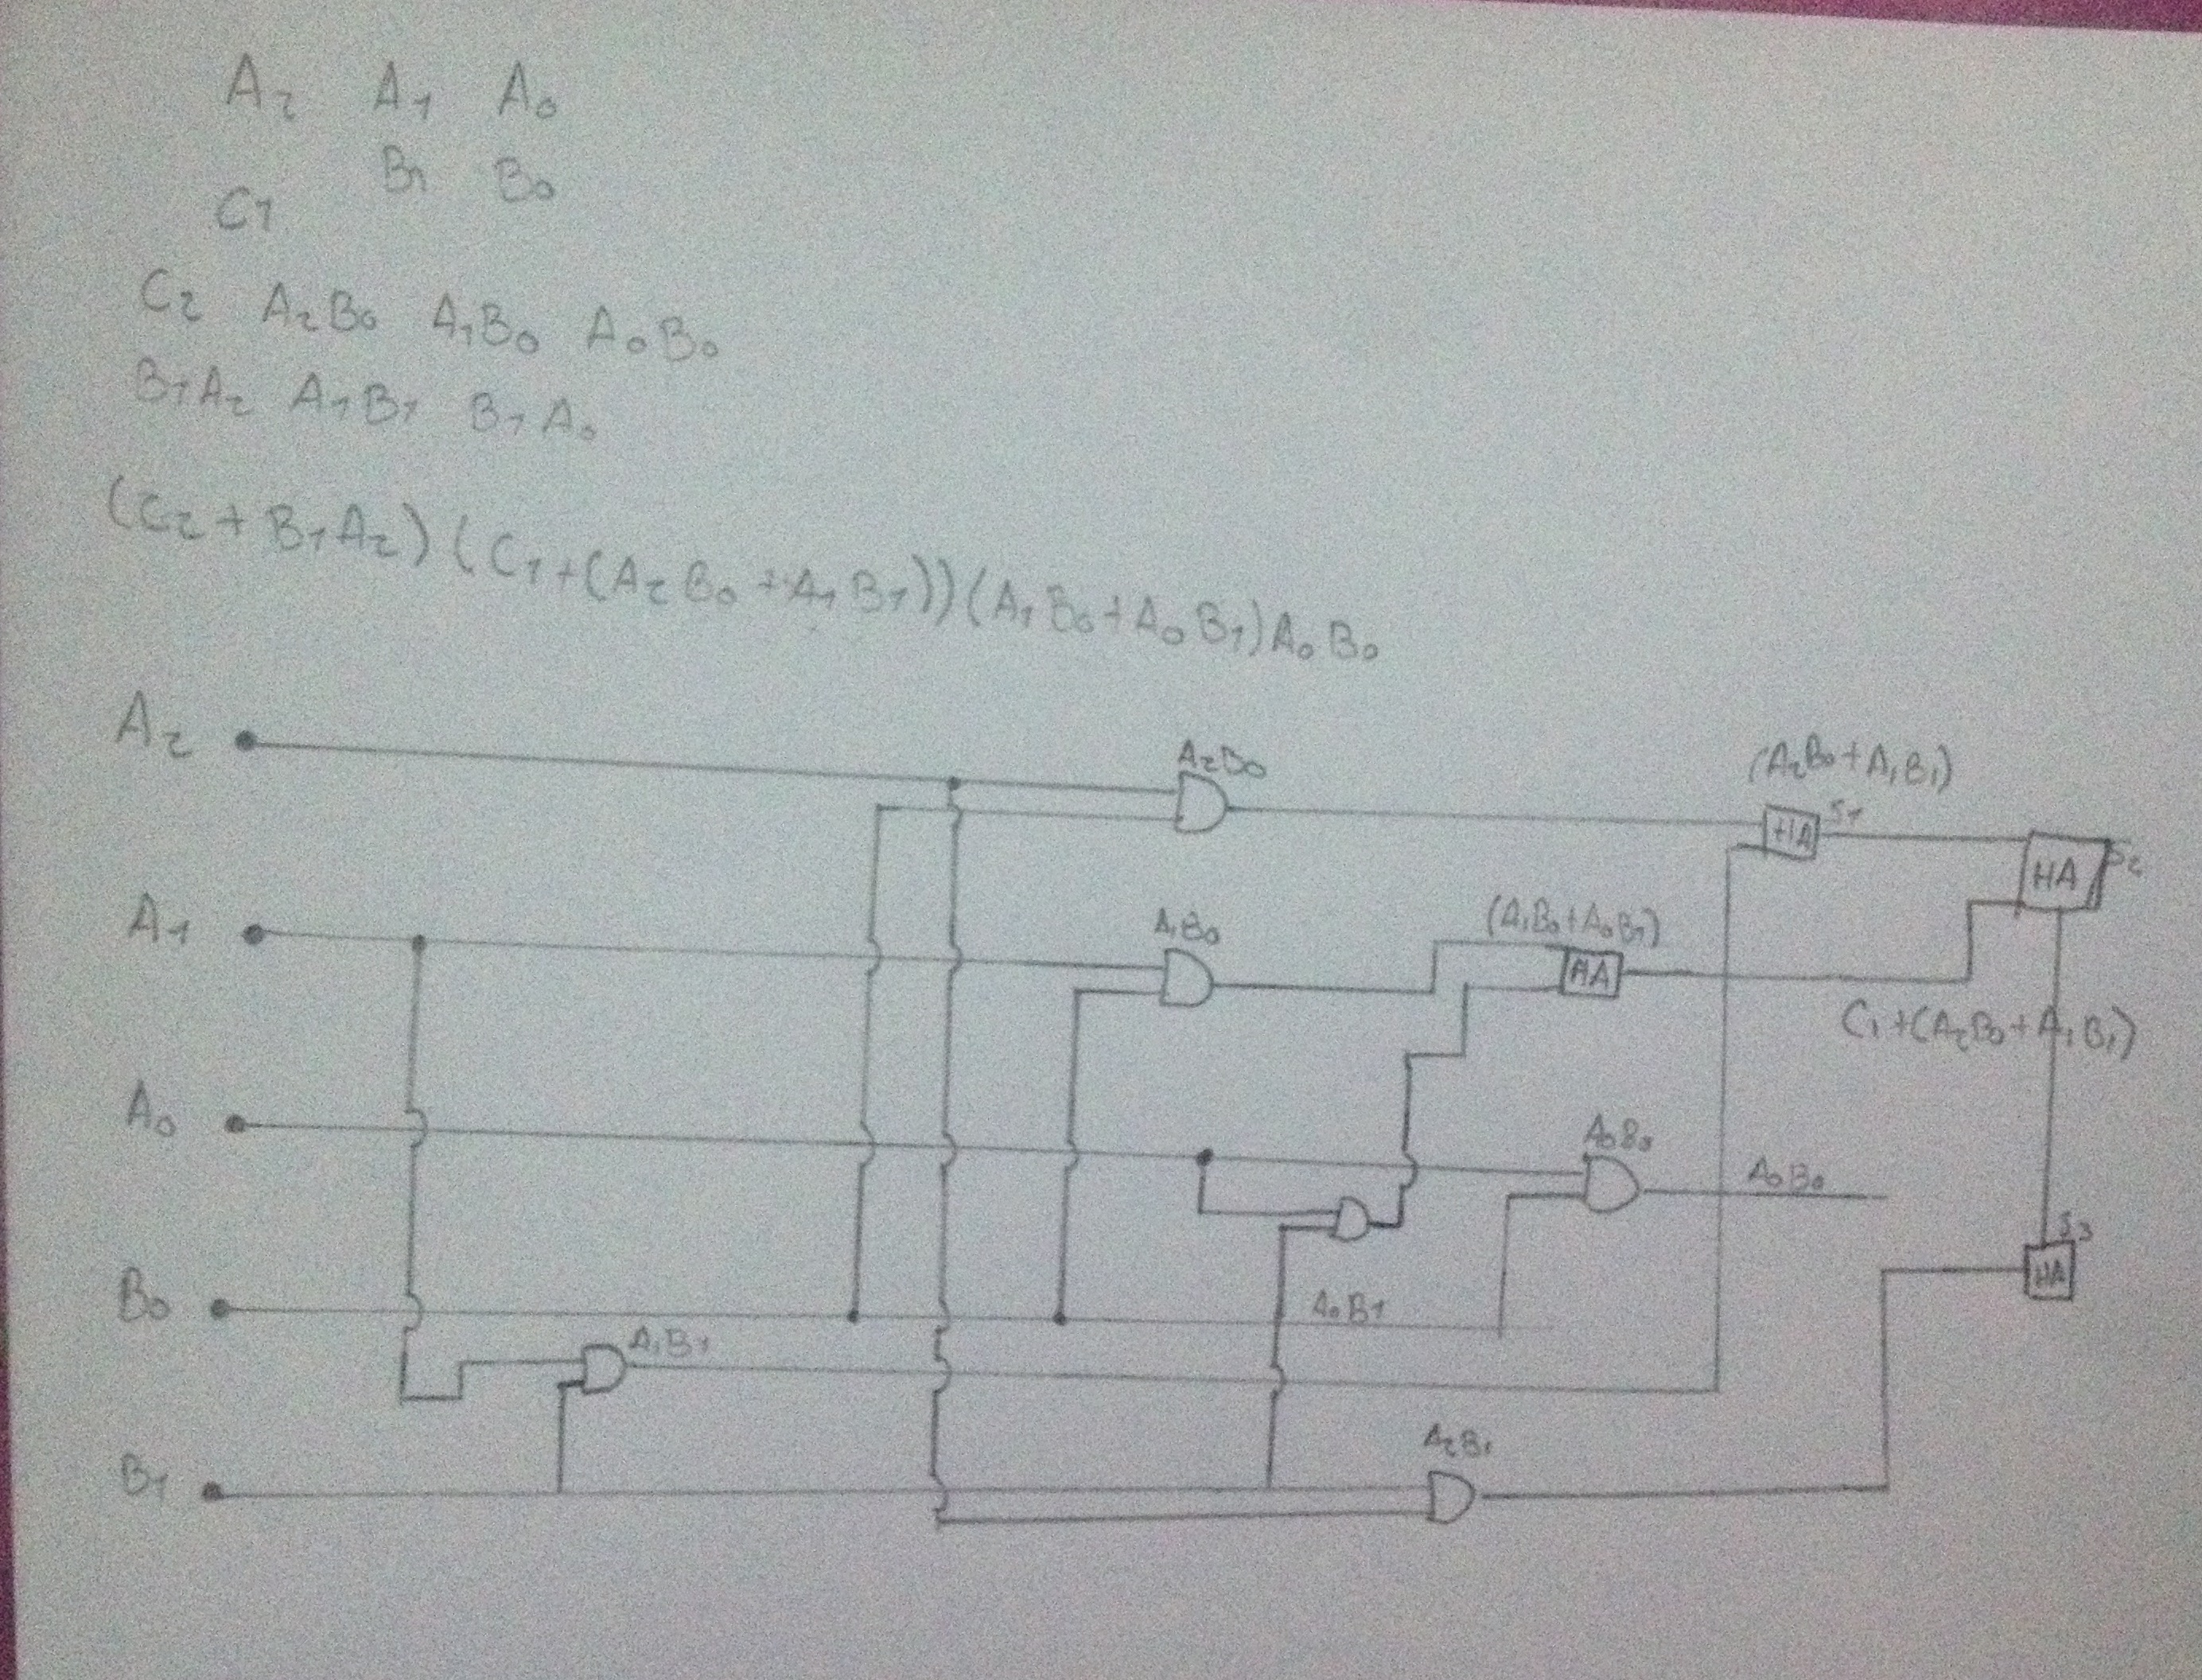 A₂ A₁ A₀
B₁ B₀
C₁
C₂ A₂B₀ A₁B₀ A₀B₀
B₁A₂ A₁B₁ B₁A₀
(C₂+B₁A₂)(C₁+(A₂B₀+A₁B₁))(A₁B₀+A₀B₁)A₀B₀
A₂
A₂B₀
(A₂B₀+A₁B₁)
HA S₁
HA S₂
A₁
A₁B₀
(A₁B₀+A₀B₁)
HA
C₁+(A₂B₀+A₁B₁)
A₀
A₀B₀
A₀B₀
S₃
HA
B₀
A₀B₁
A₁B₁
B₁
A₂B₁